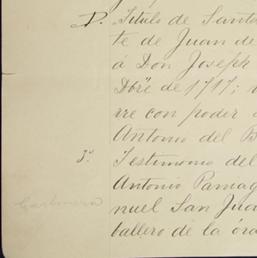 D. Titulo de Santo
te de Juan de
a Don Joseph
Dbre de 1717; v
re con poder
Antonio del B
3.º Testimonio del
Antonio Pamag
nuel San Jua
ballero de la órd